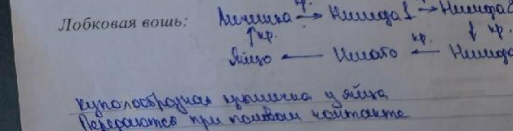 Лобковая вошь: Личинка кр. → Нимфа 1 → Нимфа 2
↑ кр. ↓ кр.
Яйцо ← Имаго кр. ← Нимфа
куполообразная крышечка у яйца
Передаются при половом контакте